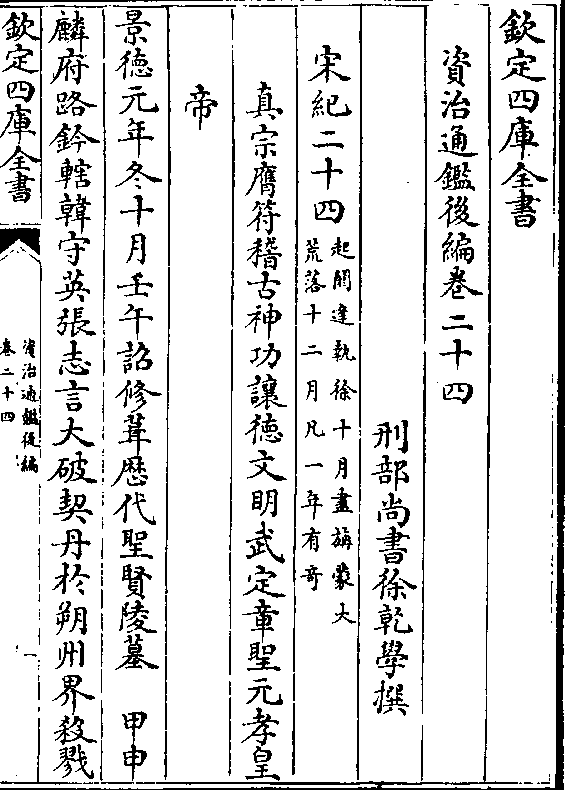 欽定四庫全書
資治通鑑後編卷二十四
刑部尚書徐乾學撰
宋紀二十四起閼逢執徐十月盡旃蒙大
荒落十二月凡一年有奇
真宗膺符稽古神功讓德文明武定章聖元孝皇
帝
景德元年冬十月壬午詔修葺歴代聖賢陵墓　甲申
麟府路鈐轄韓守英張志言大破契丹於朔州界殺戮
欽定四庫全書
資治通鑑後編
卷二十四
一